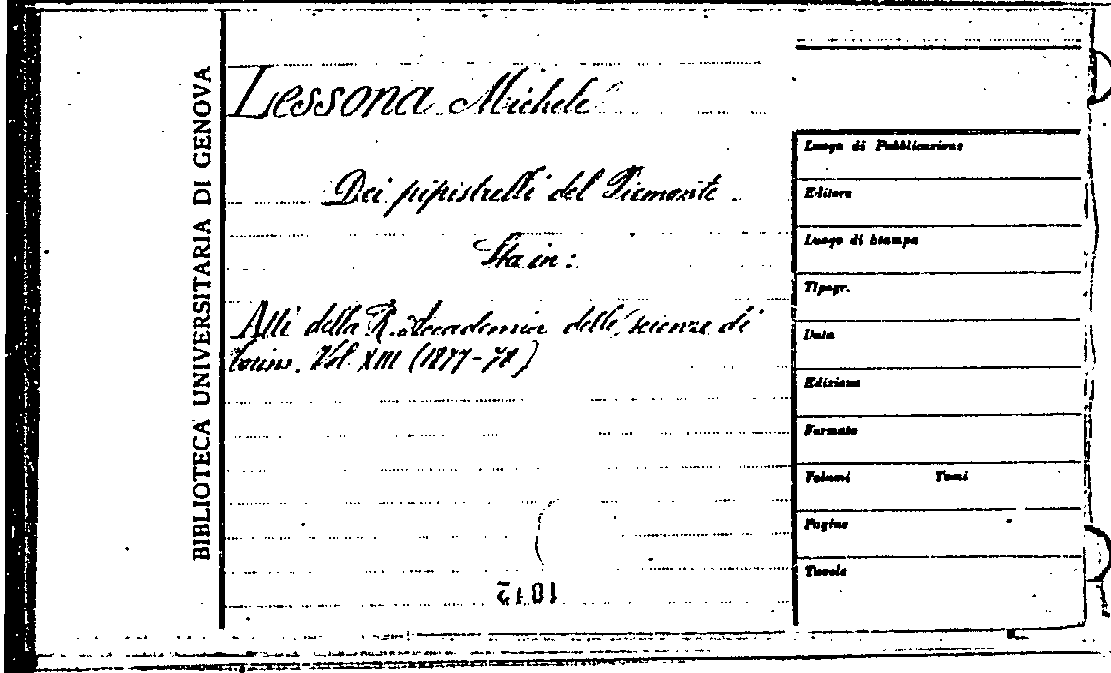 BIBLIOTECA UNIVERSITARIA DI GENOVA
Lessona Michele
Dei pipistrelli del Piemonte.
Sta in:
Atti della R. Accademia delle scienze di
Torino. Vol. XIII (1877-78)
Luogo di Pubblicazione
Editore
Luogo di Stampa
Tipogr.
Data
Edizione
Formato
Volumi Tomi
Pagine
Tavole